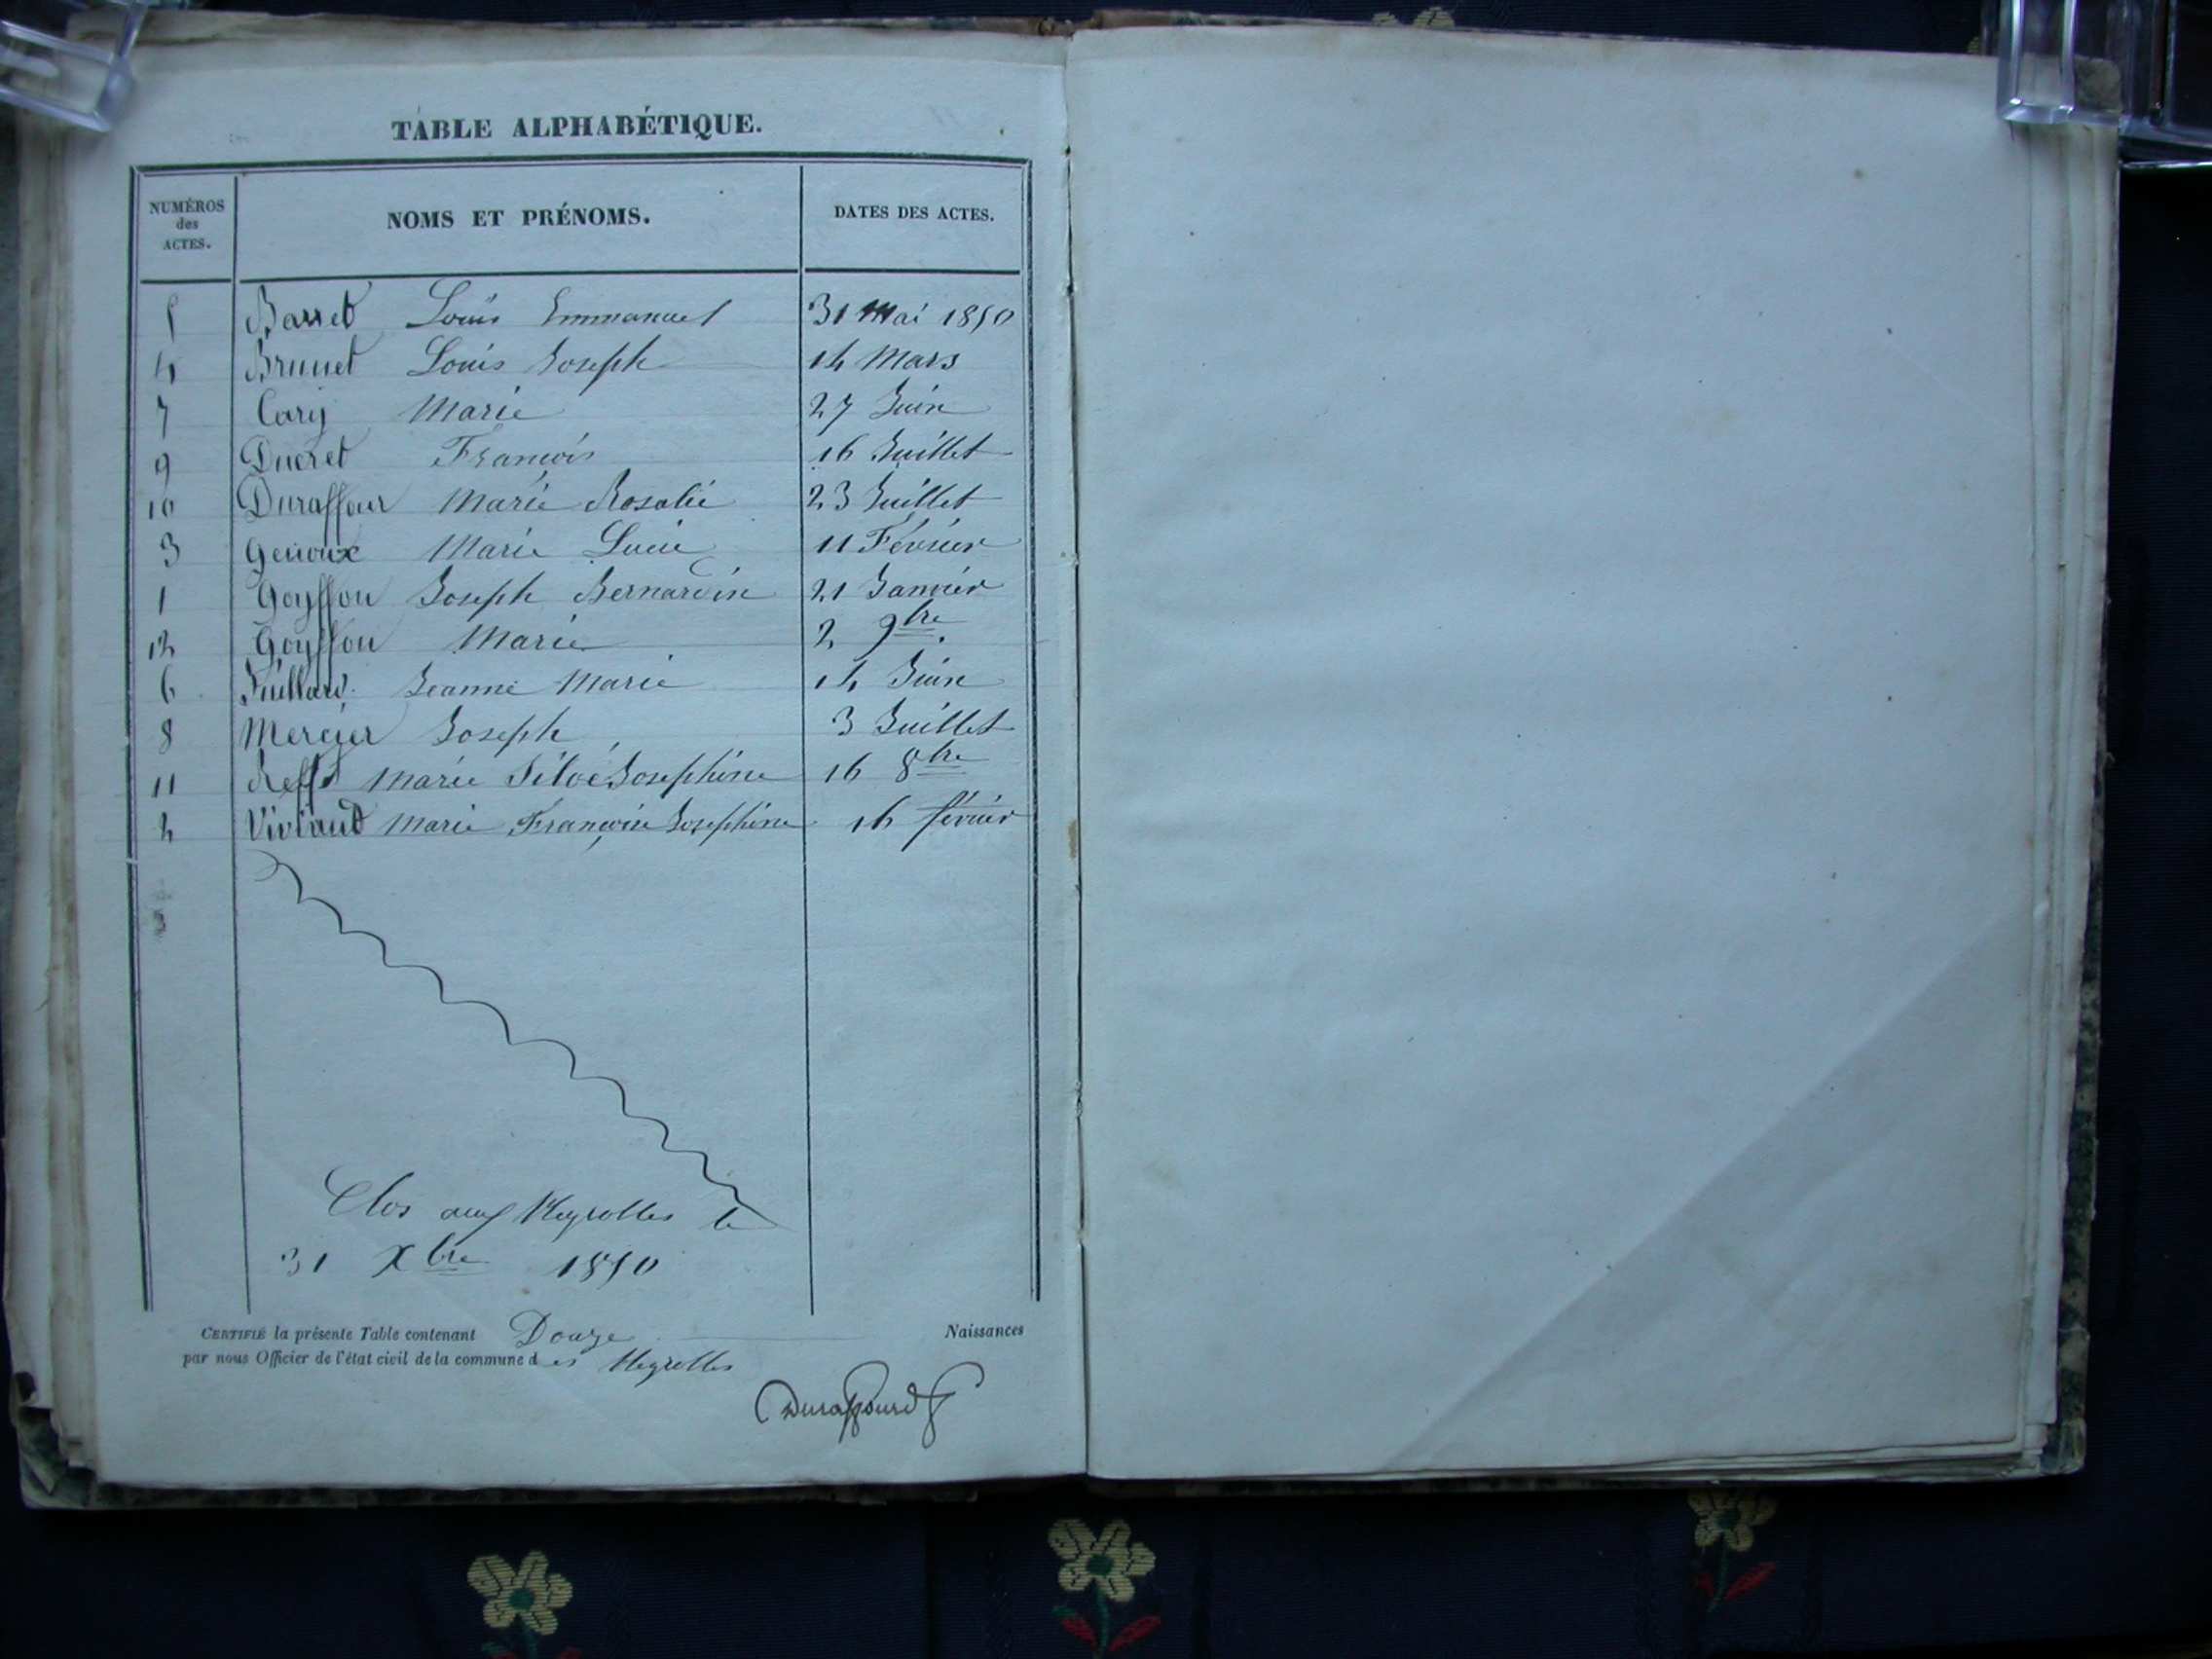 TABLE ALPHABÉTIQUE.
NUMÉROS des ACTES. NOMS ET PRÉNOMS. DATES DES ACTES.
5 Barret Louis Emmanuel 31 Mai 1850
4 Brunet Louis Joseph 14 Mars
7 Cary Marie 27 Juin
9 Ducret François 16 Juillet
10 Duraffour Marie Rosalie 23 Juillet
3 Genoux Marie Lucie 11 Février
1 Goyffon Joseph Bernardin 21 Janvier
12 Goyffon Marie 2 9bre
6 Juillard Jeanne Marie 14 Juin
8 Mercier Joseph 3 Juillet
11 Marie Josephine 16 8bre
2 Viviand Marie Françoise Josephine 16 février
Clos aux Meyrolles le
31 Xbre 1850
CERTIFIÉ la présente Table contenant Douze Naissances
par nous Officier de l'état civil de la commune des Meyrolles
Duraffourd